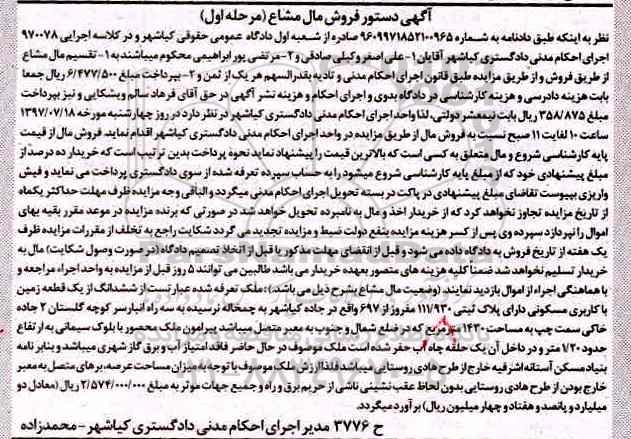 آگهی دستور فروش مال مشاع (مرحله اول)
نظر به اینکه طبق دادنامه به شماره ۹۶۰۹۹۷۱۸۵۲۱۰۰۹۶۵ صادره از شعبه اول دادگاه عمومی حقوقی کیاشهر و در کلاسه اجرایی ۹۷۰۰۷۸
اجرای احکام مدنی دادگستری کیاشهر آقایان ۱-علی اصغر وکیلی صادقی و ۲-مرتضی پور ابراهیمی محکوم میباشند به ۱-تقسیم مال مشاع
از طریق فروش و از طریق مزایده طبق قانون اجرای احکام مدنی و تادیه بقدرالسهم هر یک از ثمن و ۲-پرداخت مبلغ ۶/۴۷۷/۵۰۰ ریال جمعا
بابت هزینه دادرسی و هزینه کارشناسی در دادگاه بدوی و اجرای احکام و هزینه نشر آگهی در حق آقای فرهاد سالم ویشکایی و نیز پرداخت
مبلغ ۳۵۸/۸۷۵ ریال بابت نیمعشر دولتی، لذا واحد اجرای احکام مدنی دادگستری کیاشهر در نظر دارد در روز چهارشنبه مورخه ۱۳۹۷/۰۷/۱۸
ساعت ۱۰ لغایت ۱۱ صبح نسبت به فروش مال از طریق مزایده در واحد اجرای احکام مدنی دادگستری کیاشهر اقدام نماید. فروش مال از قیمت
پایه کارشناسی شروع و مال متعلق به کسی است که بالاترین قیمت را پیشنهاد نماید نحوه پرداخت بدین ترتیب است که خریدار ده درصد از
مبلغ پیشنهادی خود که از مبلغ پایه کارشناسی شروع میشود را به حساب سپرده تعرفه شده از سوی دادگستری پرداخت می نماید و فیش
واریزی بپیوست تقاضای مبلغ پیشنهادی در پاکت در بسته تحویل اجرای احکام مدنی میگردد و الباقی وجه مزایده ظرف مهلت حداکثر یکماه
از تاریخ مزایده تجاوز نخواهد کرد که از خریدار اخذ و مال به نامبرده تحویل خواهد شد در صورتی که برنده مزایده در موعد مقرر بقیه بهای
اموال را نپردازد سپرده وی پس از کسر هزینه مزایده بنفع دولت ضبط و مزایده تجدید می گردد شکایت راجع به تخلف از مقررات مزایده ظرف
یک هفته از تاریخ فروش به دادگاه داده می شود و قبل از انقضای مهلت مذکور یا قبل از اتخاذ تصمیم دادگاه (در صورت وصول شکایت) مال به
خریدار تسلیم نخواهد شد ضمنا کلیه هزینه های متصور بعهده خریدار می باشد طالبین می توانند ۵ روز قبل از مزایده به واحد اجراء مراجعه و
با هماهنگی اجراء از اموال بازدید نمایند. (وضعیت مال مشاع بشرح ذیل می باشد): ملک تعرفه شده عبارتست از ششدانگ از یک قطعه زمین
با کاربری مسکونی دارای پلاک ثبتی ۱۱۱/۹۳۰ مفروز از ۶۹۷ واقع در جاده کیاشهر به چمخاله نرسیده به سه راه انبارسر کوچه گلستان ۲ جاده
خاکی سمت چپ به مساحت ۱۴۳۰ مترمربع که در ضلع شمال و جنوب به معبر متصل میباشد پیرامون ملک محصور با بلوک سیمانی به ارتفاع
حدود ۱/۲۰ متر و در داخل آن یک حلقه چاه آب حفر شده است ملک موصوف در حال حاضر فاقد امتیاز آب و برق گاز شهری میباشد و بنابر نامه
بنیاد مسکن آستانه اشرفیه خارج از طرح هادی روستایی میباشد فلذا ارزش ملک موصوف با توجه به میزان مساحت عرصه، برهای متصل به معبر
خارج بودن از طرح هادی روستایی بدون لحاظ عقب نشینی ناشی از حریم برق و راه و جمیع جهات موثر به مبلغ ۲/۵۷۴/۰۰۰/۰۰۰ ریال (معادل دو
میلیارد و پانصد و هفتاد و چهار میلیون ریال) برآورد میگردد.
ح ۳۷۷۶ مدیر اجرای احکام مدنی دادگستری کیاشهر-محمدزاده